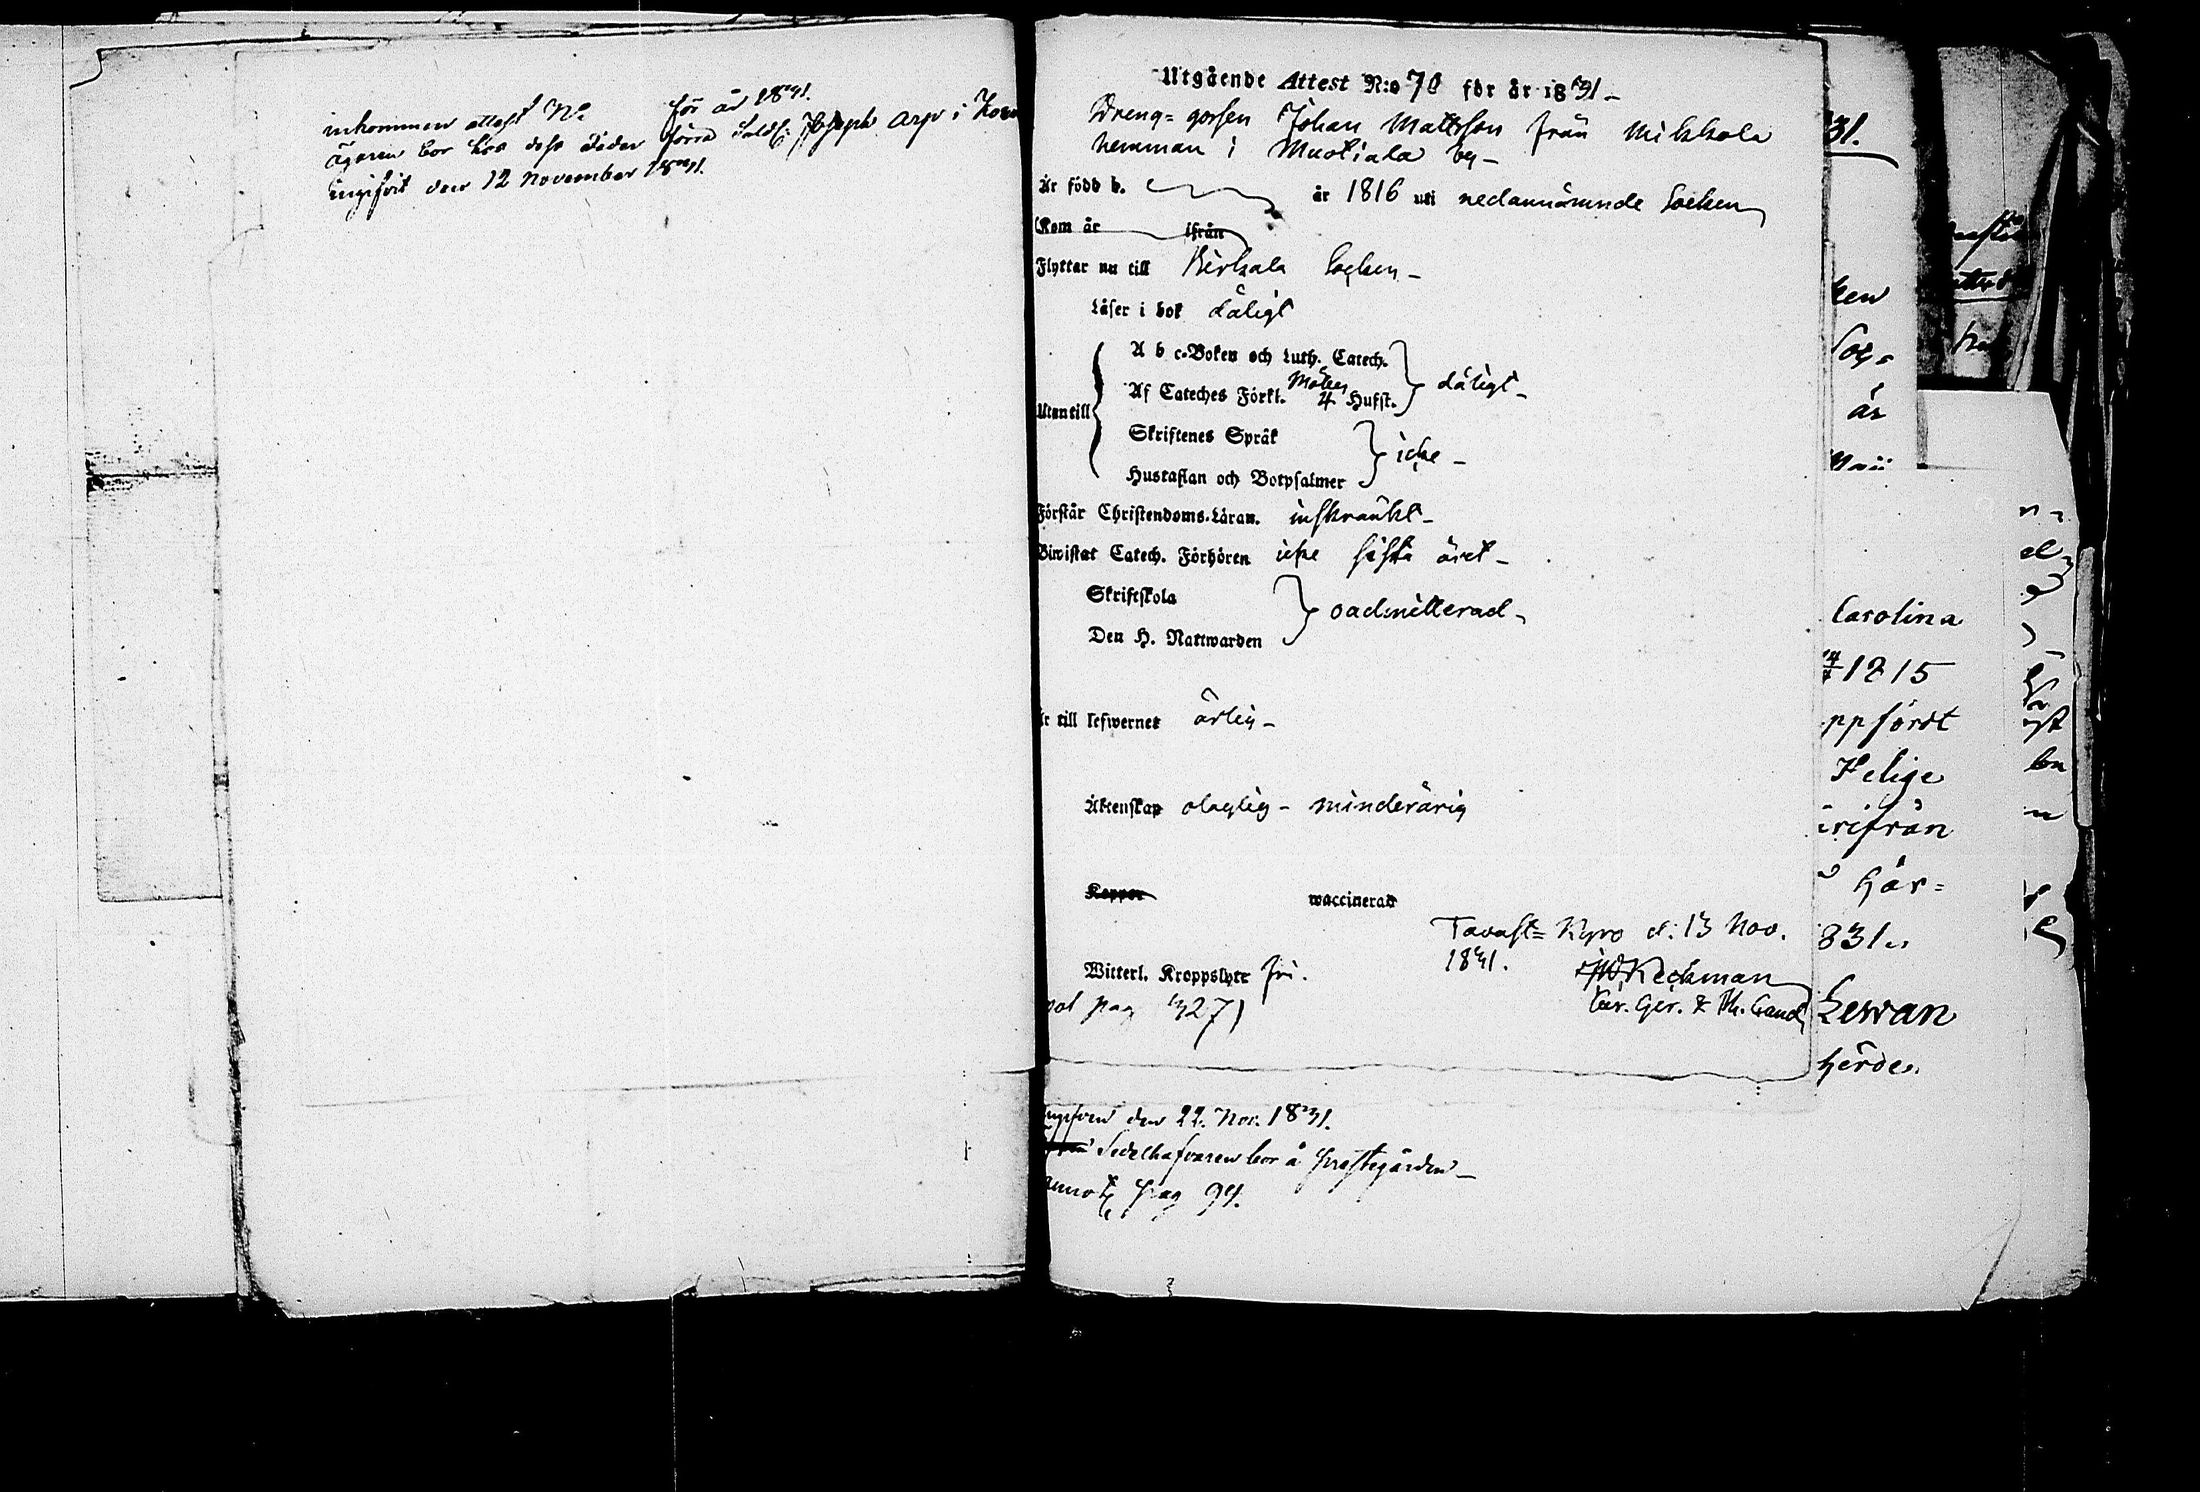 inkommen attest No för år 1831.
ägaren bor hos dess Fader förra Sold: Joseph Arp i
ingifvit den 12 November 1831.
Utgående Attest N:o 70 för år 1831 -
Dreng-gossen Johan Mattsson från Mikkola
hemman i Muotiala by -
Är född d. år 1816 uti nedannämnde Socken
Kom år ifrån
Flyttar nu till Birkala Socken -
Läser i bok dåligt
A b c-Boken och Luth. Catech.
Af Cateches Förkl. 4 Hufst. dåligt -
Utantill
Skriftenes Språk
icke -
Hustaflan och Botpsalmer
Förstår Christendoms-Läran. inskränkt -
Biwistat Catech. Förhören icke sista året -
Skriftskola
oadmitterad -
Den H. Nattwarden
till lefwernet ärlig -
Äktenskap olaglig - minderårig
Koppor waccinerad
Tavast-Kyro d: 13 Nov.
1831.
Witterl. Kroppslyte fri.
pag 327)
den 22. Nov. 1831.
Sedelhafvaren bor å Prestegården -
pag 94.
31.
ken
år
Maii
Carolina
1815
ppfördt
Helige
ärifrån
här=
831.
Lewan
herde.